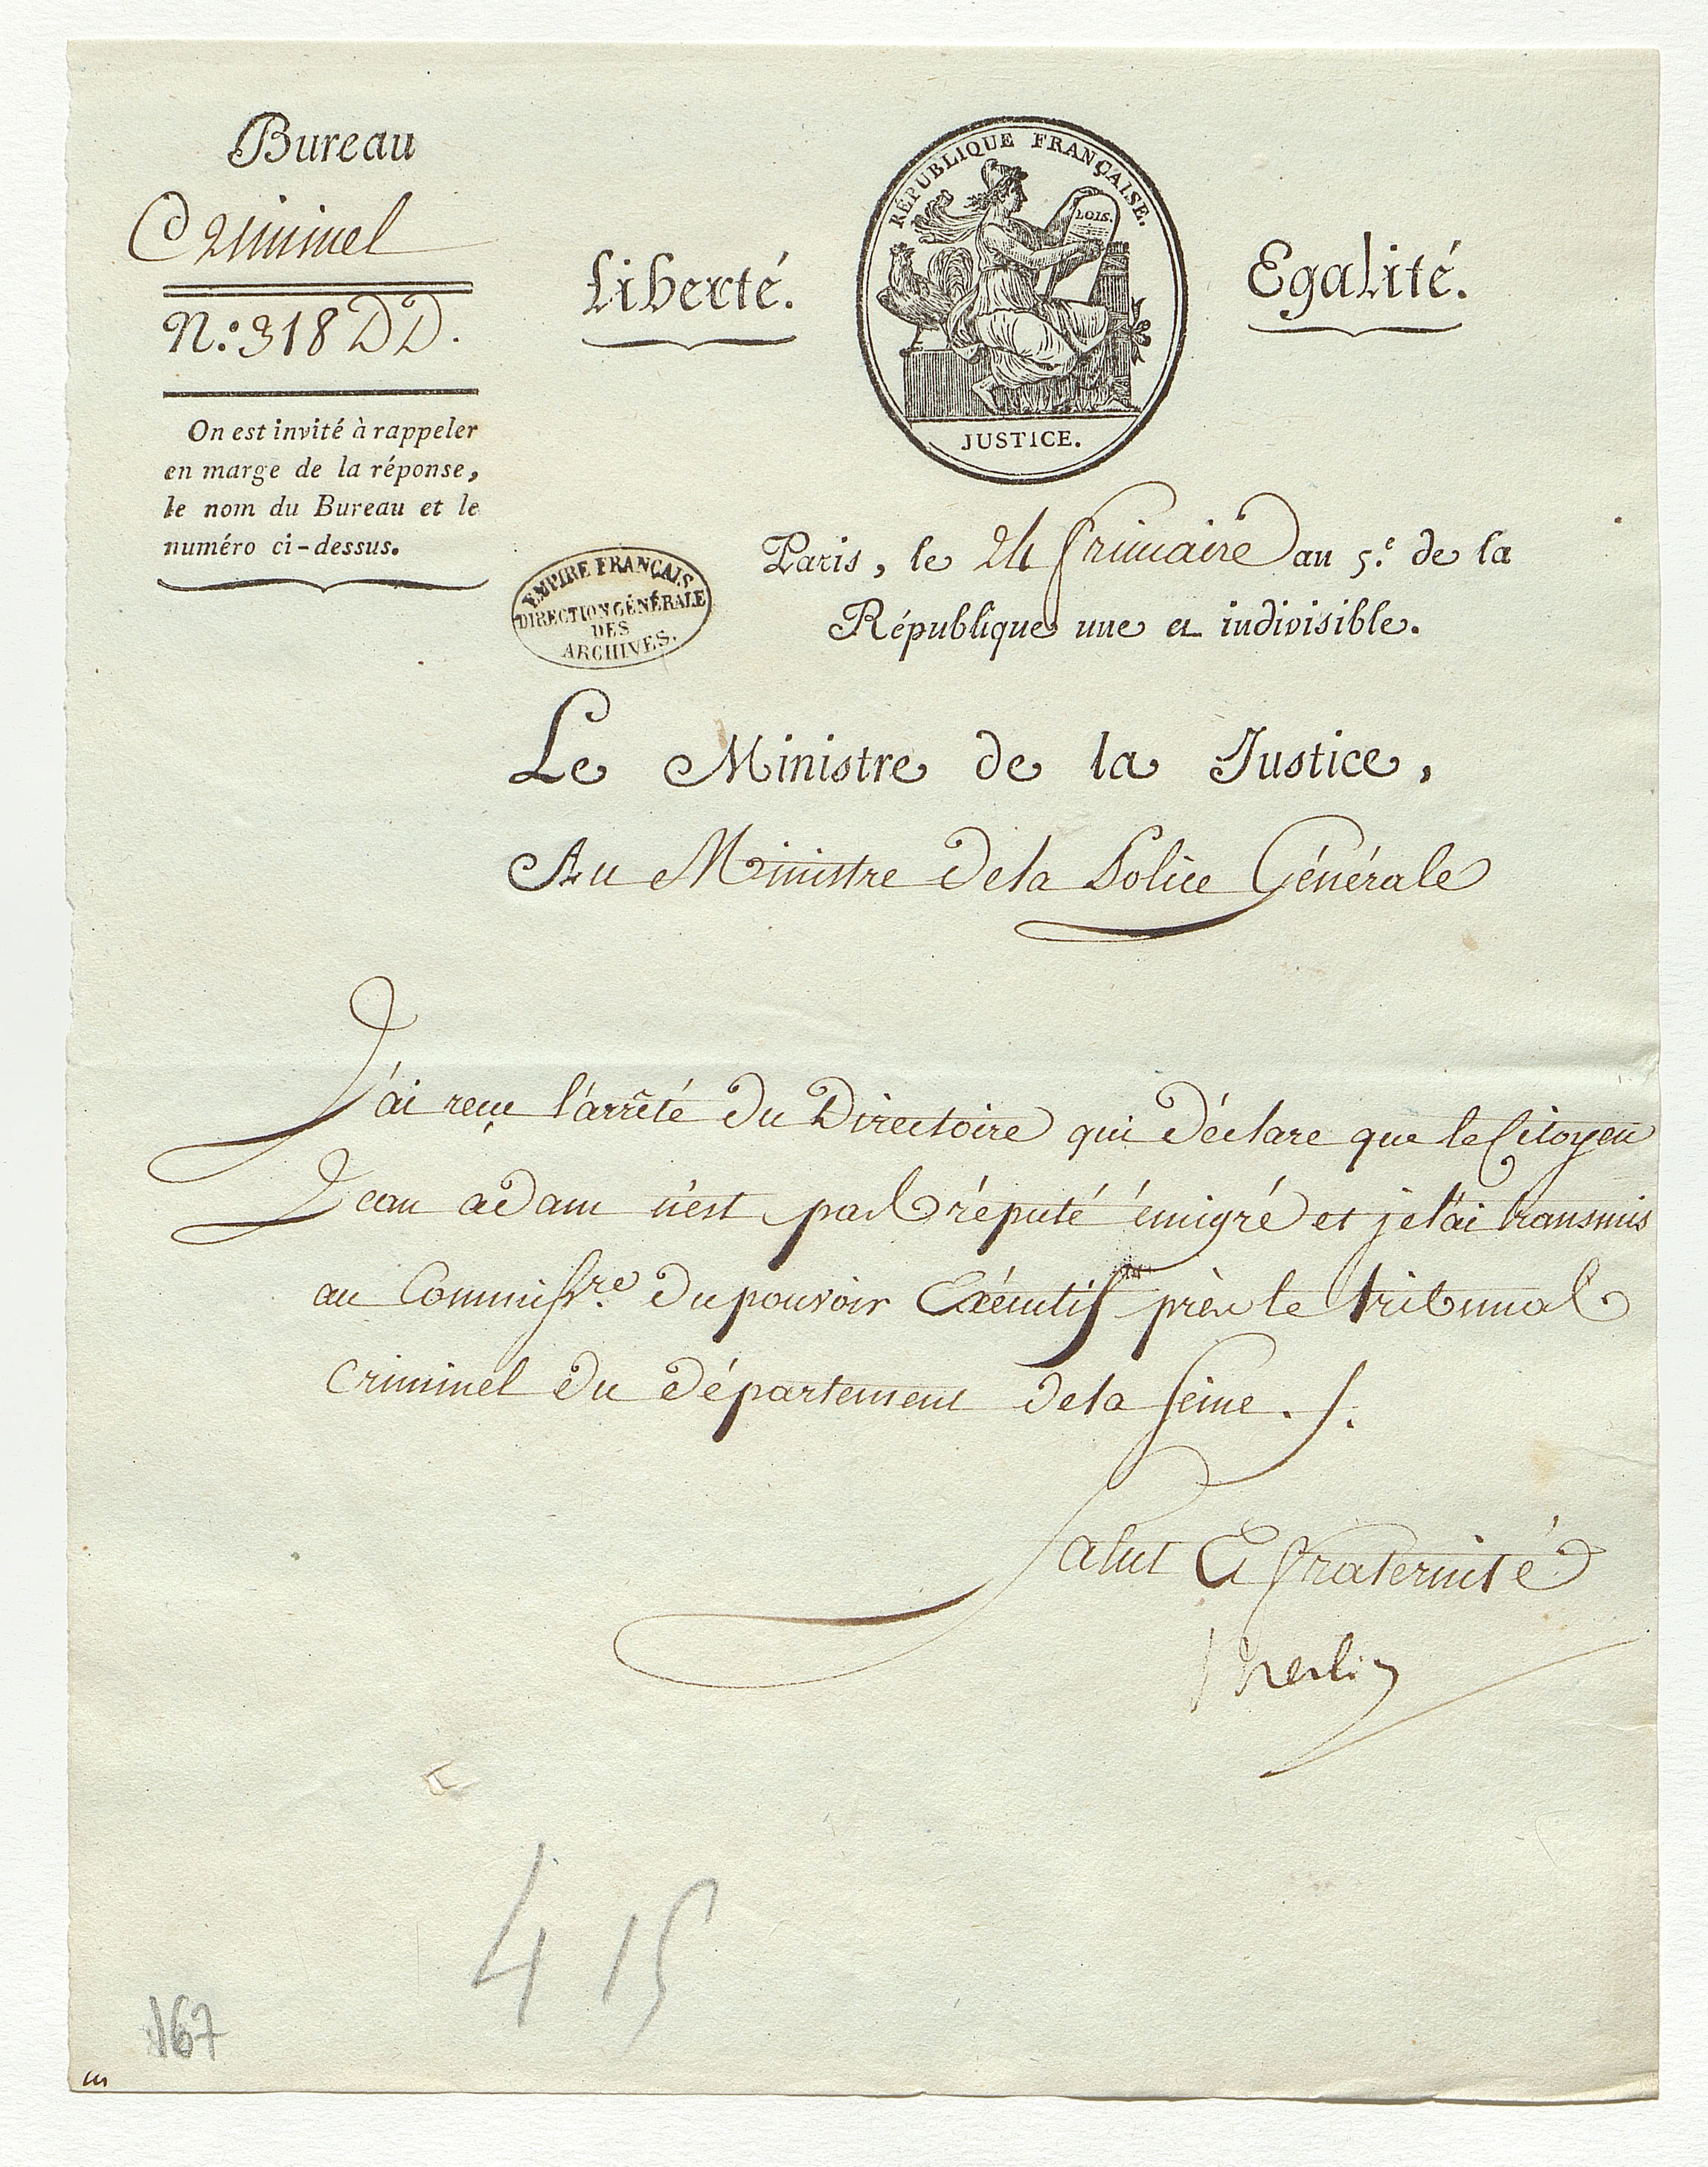 Bureau
Criminel
N.º 318 DD.
On est invité à rappeler
en marge de la réponse,
le nom du Bureau et le
numéro ci-dessus.
Liberté.
RÉPUBLIQUE FRANÇAISE.
LOIS.
JUSTICE.
Egalité.
EMPIRE FRANÇAIS
DIRECTION GÉNÉRALE
DES
ARCHIVES.
Paris, le 24 frimaire an 5.e de la
République une et indivisible.
Le Ministre de la Justice,
Au Ministre de la Police Générale
J'ai reçu l'arrêté du Directoire qui déclare que le Citoyen
Jean adam n'est pas réputé émigré et je l'ai transmis
au Commissre. du pouvoir Exécutif près le tribunal
criminel du département de la Seine. /.
Salut Et fraternité
Merlin
415
167